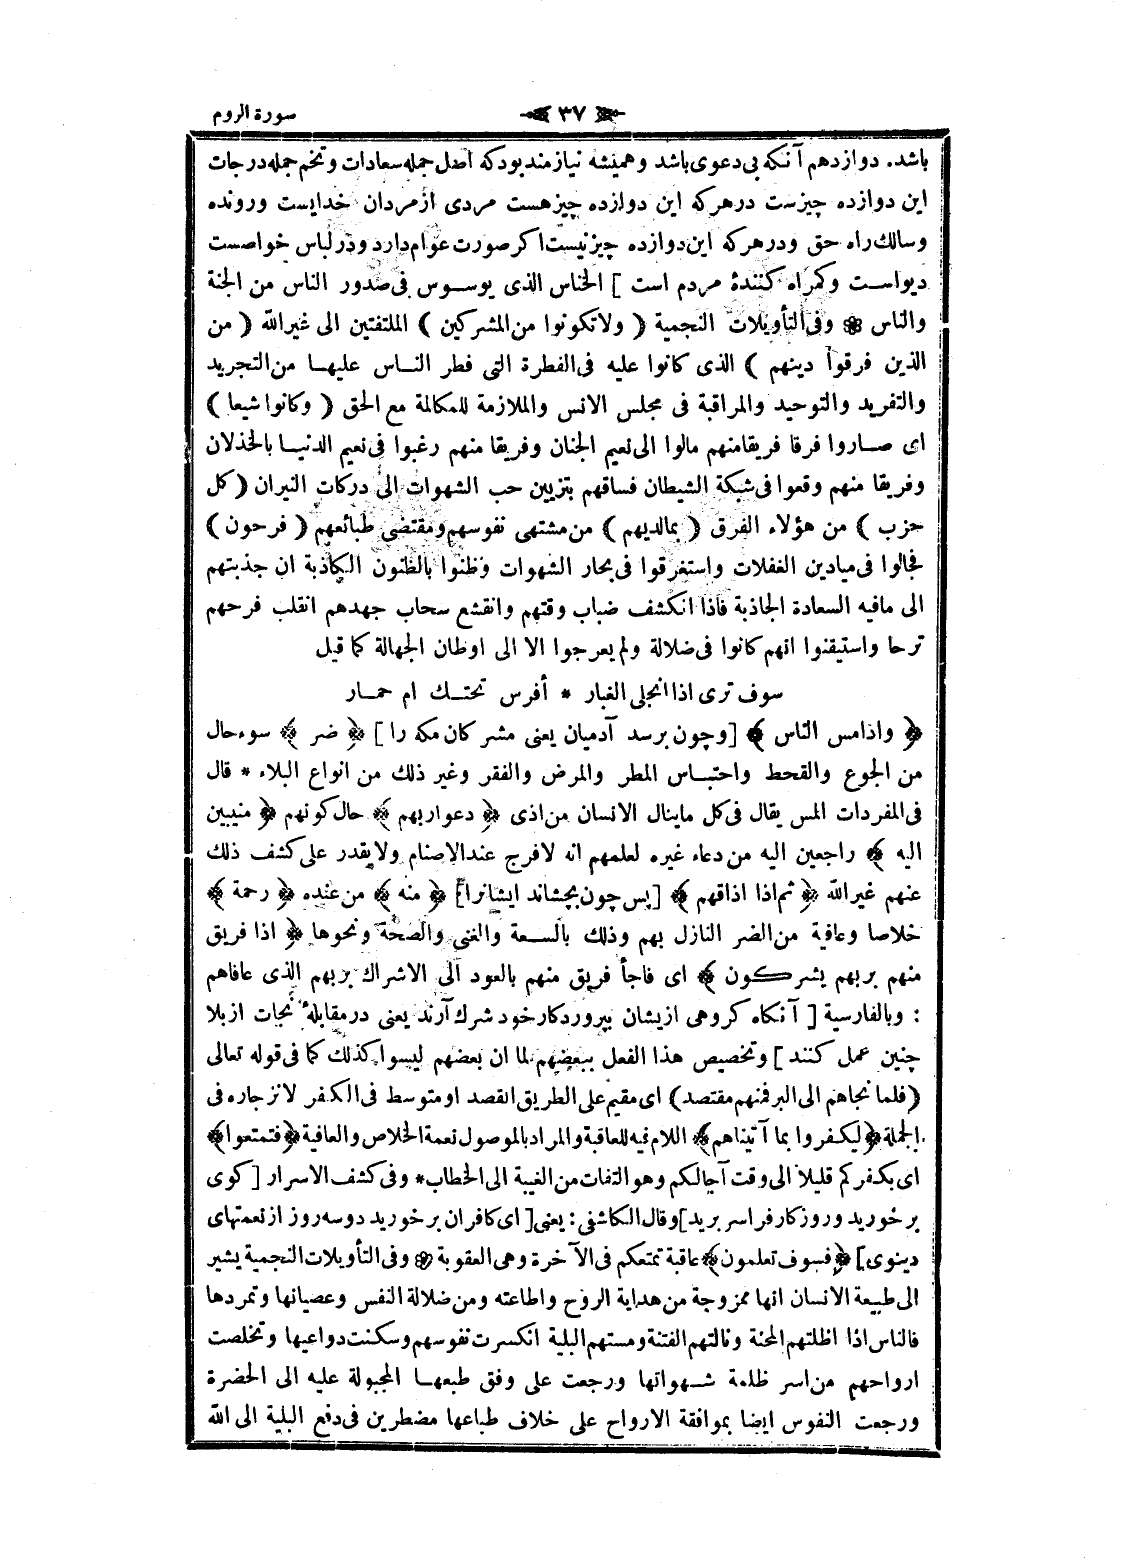 سورة الروم
﴿ ٣٧ ﴾
باشد. دوازدهم آنكه بى دعوى باشد وهميشه نيازمند بودكه اصل جمله سعادات وتخم جمله درجات
اين دوازده چيزست درهركه اين دوازده چيزهست مردى ازمردان خدايست ورونده
وسالك راه حق ودرهركه اين دوازده چيزنيست اكرصورت عوام دارد ودرلباس خواصست
ديواست وكمراه كنندۀ مردم است ] الخناس الذى يوسوس فى صدور الناس من الجنة
والناس ❁ وفى التأويلات النجمية ( ولاتكونوا من المشركين ) الملتفتين الى غيرالله ( من
الذين فرقوا دينهم ) الذى كانوا عليه فى الفطرة التى فطر الناس عليها من التجريد
والتفريد والتوحيد والمراقبة فى مجلس الانس والملازمة للمكالمة مع الحق ( وكانوا شيعا )
اى صاروا فرقا فريقامنهم مالوا الى نعيم الجنان وفريقا منهم رغبوا فى نعيم الدنيا بالخذلان
وفريقا منهم وقعوا فى شبكة الشيطان فساقهم بتزيين حب الشهوات الى دركات النيران ( كل
حزب ) من هؤلاء الفرق ( بمالديهم ) من مشتهى نفوسهم ومقتضى طبائعهم ( فرحون )
فجالوا فى ميادين الغفلات واستغرقوا فى بحار الشهوات وظنوا بالظنون الكاذبة ان جذبتهم
الى مافيه السعادة الجاذبة فاذا انكشف ضباب وقتهم وانقشع سحاب جهدهم انقلب فرحهم
ترحا واستيقنوا انهم كانوا فى ضلالة ولم يعرجوا الا الى اوطان الجهالة كما قيل
سوف ترى اذا انجلى الغبار * أفرس تحتك ام حمار
﴿ واذامس الناس ﴾ [وچون برسد آدميان يعنى مشركان مكه را ] ﴿ ضر ﴾ سوء حال
من الجوع والقحط واحتباس المطر والمرض والفقر وغير ذلك من انواع البلاء * قال
فى المفردات المس يقال فى كل ماينال الانسان من اذى ﴿ دعواربهم ﴾ حال كونهم ﴿ منيبين
اليه ﴾ راجعين اليه من دعاء غيره لعلمهم انه لافرج عندالاصنام ولايقدر على كشف ذلك
عنهم غيرالله ﴿ ثم اذا اذاقهم ﴾ [پس چون بچشاند ايشانرا] ﴿ منه ﴾ من عنده ﴿ رحمة ﴾
خلاصا وعافية من الضر النازل بهم وذلك بالسعة والغنى والصحة ونحوها ﴿ اذا فريق
منهم بربهم يشركون ﴾ اى فاجأ فريق منهم بالعود الى الاشراك بربهم الذى عافاهم
: وبالفارسية [ آنكاه كروهى ازيشان بپروردكارخود شرك آرند يعنى درمقابلۀ نجات ازبلا
چنين عمل كنند ] وتخصيص هذا الفعل ببعضهم لما ان بعضهم ليسوا كذلك كما فى قوله تعالى
(فلما نجاهم الى البر فمنهم مقتصد) اى مقيم على الطريق القصد اومتوسط فى الكفر لانزجاره فى
الجملة ﴿ليكفروا بما آتيناهم﴾ اللام فيه للعاقبة والمراد بالموصول نعمة الخلاص والعافية ﴿فتمتعوا﴾
اى بكفركم قليلا الى وقت آجالكم وهو التفات من الغيبة الى الخطاب * وفى كشف الاسرار [ كوى
برخوريد وروزكار فراسر بريد] وقال الكاشفى : يعنى [ اى كافران برخوريد دوسه روز ازنعمتهاى
دينوى ] ﴿فسوف تعلمون﴾ عاقبة تمتعكم فى الآخرة وهى العقوبة ❁ وفى التأويلات النجمية يشير
الى طبيعة الانسان انها ممزوجة من هداية الروح واطاعته ومن ضلالة النفس وعصيانها وتمردها
فالناس اذا اظلتهم المحنة ونالتهم الفتنة ومستهم البلية انكسرت نفوسهم وسكنت دواعيها وتخلصت
ارواحهم من اسر ظلمة شهواتها ورجعت على وفق طبعها المجبولة عليه الى الحضرة
ورجعت النفوس ايضا بموافقة الارواح على خلاف طباعها مضطرين فى دفع البلية الى الله